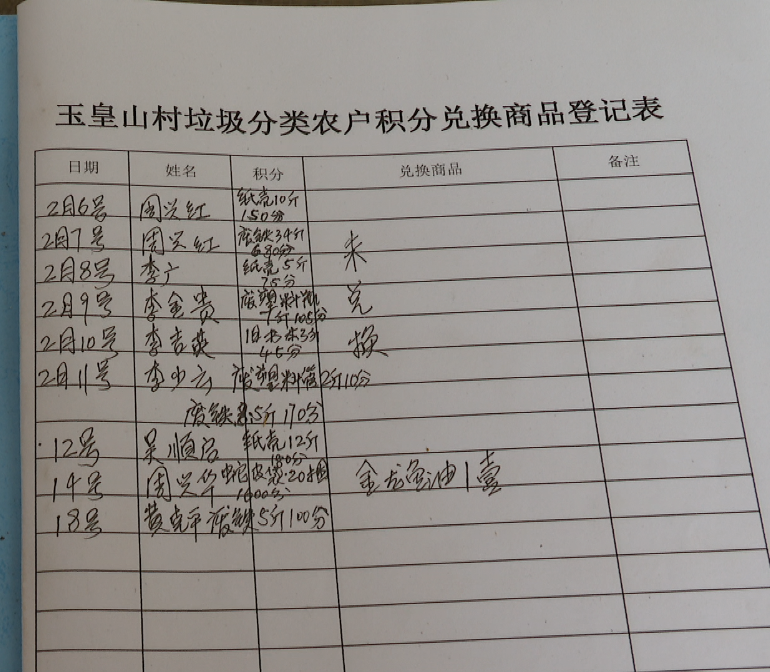 玉皇山村垃圾分类农户积分兑换商品登记表
日期 姓名 积分 兑换商品 备注
2月6号 周兴红 纸壳10斤
150分
2月7号 周兴红 废铁34斤
680分 未
2月8号 李广 纸壳5斤
75分
2月9号 李金贵 废塑料瓶 兑
7斤105分
2月10号 李吉英 旧书本3斤 换
45分
2月11号 李少云 废塑料 2斤10分
废铁8.5斤170分
12号 吴顺 纸壳12斤
180分
14号 周兴华 蛇皮袋.20捆 金龙鱼油1壹
1600分
18号 黄克平 废铁5斤100分